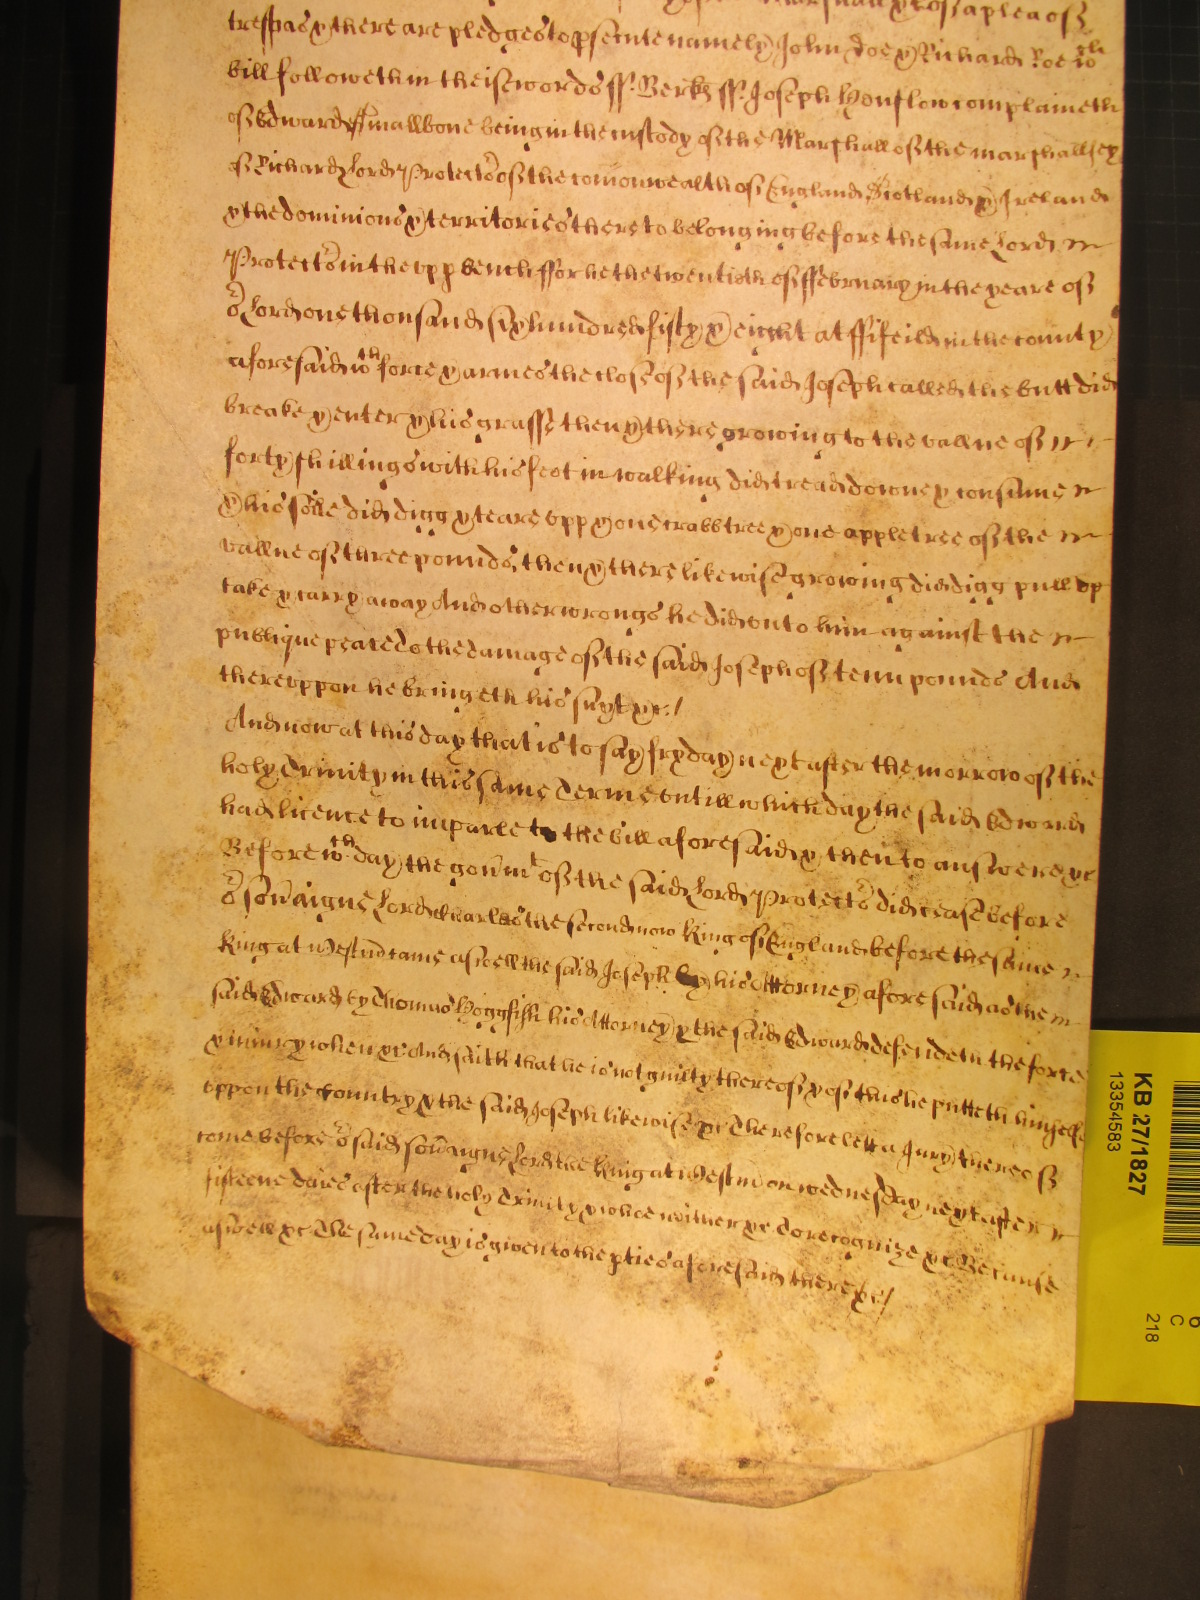 of a plea of
trespas & there are pledges to psecute namely John Doe & Richard Roe wch
bill followeth in theise words ss. Berks ss. Joseph Hounslow complaineth
of Edward Smallbone being in the custody of the Marshall of the marshallsey
of Richard Lord Protector of the comonwealth of England Scotland & Ireland
& the dominions & territories thereto belonging before the same Lord
Protector in the upp bench ffor that he the twentieth of ffebruary in the yeare of
or Lord one thousand six hundred fifty & eight at ffifeild in the county
aforesaid wth force & armes the close of the said Joseph called the butt did
breake & enter & his grasse then & there growing to the vallue of
forty shillings with his feet in walking did tread downe & consume
& his soile did digg & teare upp & one crabbtree & one apple tree of the
vallue of three pounds then & there likewise growing did digg pull up
take & carry away And other wrongs he did unto him against the
publique peace To the damage of the said Joseph of tenn pounds And
thereuppon he bringeth his suyt &c./
And now at this day that is to say fryday next after the morrow of the
holy Trinity in this same Terme untill which day the said Edward
had licence to imparle to the bill aforesaid & then to answere &c
Before wth day the govmt of the said Lord Protector did cease before
or sovaigne Lord Charles the second now King of England before the same
King at Westm came aswell the said Joseph by his Attorney aforesaid as the
said Edward by Thomas Hoggfish his Attorney & the said Edward defendeth the force
& iniury when &c And saith that he is not guilty thereof & of this he putteth himselfe
uppon the Country & the said Joseph likewise &c Therefore lett a Jury thereof
come before or said sovaigne Lord the King at Westm on wednesday next after
fifteene daies after the holy Trinity & who neither &c To recognize &c Because
aswell &c The same day is given to the pties aforesaid there &c./
KB 27/1827
13354583
C
218